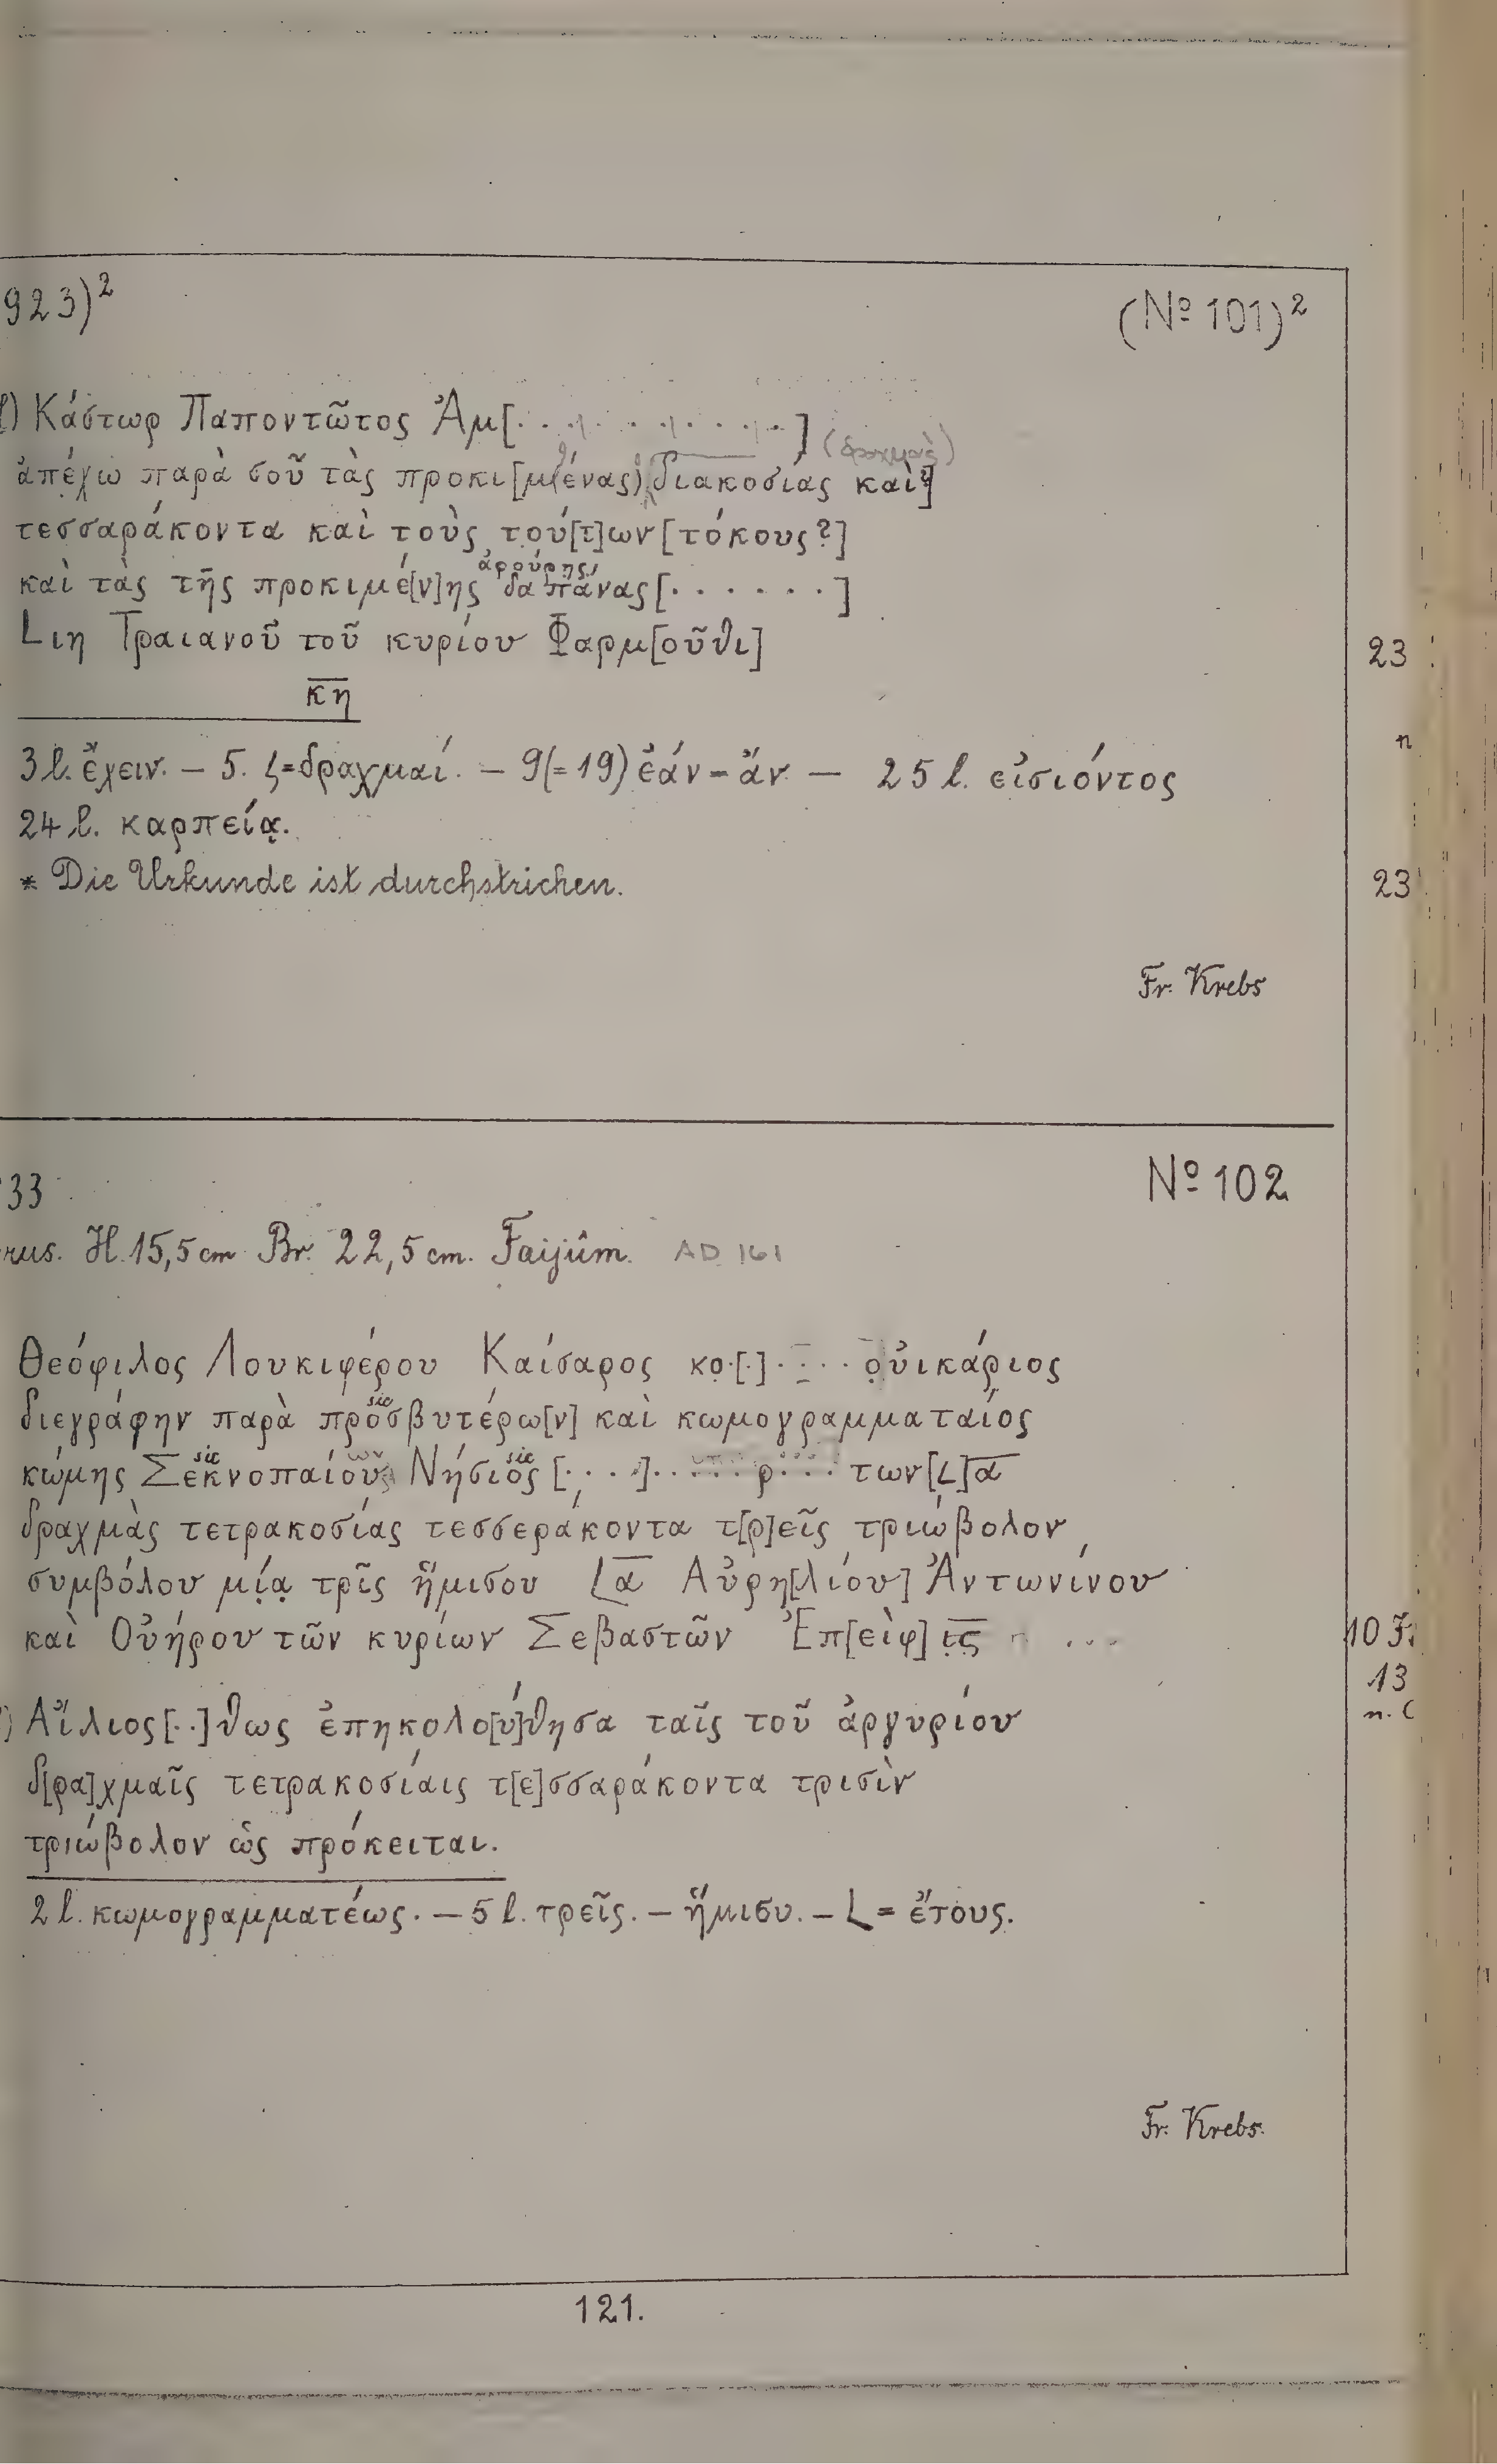 923)² (Nº 101)²
Κάστωρ Παποντῶτος Ἀμ[· · · · · · · · ·]
ἀπέχω παρὰ σοῦ τὰς προκι[μ(ένας) διακοσίας καὶ?]
τεσσαράκοντα καὶ τοὺς τού[τ]ων [τόκους?]
ἀρούρης
καὶ τὰς τῆς προκιμέ[ν]ης δαπάνας [· · · · · ·]
Lιη Τραιανοῦ τοῦ κυρίου Φαρμ[οῦθι]
κη
23
3 l. ἔχειν. – 5. ζ=δραχμαί. – 9(=19) ἐάν=ἄν – 25 l. εἰσιόντος
n
24 l. καρπείᾳ.
* Die Urkunde ist durchstrichen.
23
Fr. Krebs
33 Nº 102
H. 15,5 cm Br. 22,5 cm. Faijûm. AD 161
Θεόφιλος Λουκιφέρου Καίσαρος κο·[·]· · · · · οὐικάριος
διεγράφην παρὰ προσβυτέρω[ν] καὶ κωμογραμματαίος
sic
κώμης Σεκνοπαίου Νήσιος [· · · ·]· · · · · · ρ · · · των [L]α
sic sic
δραχμὰς τετρακοσίας τεσσεράκοντα τ[ρ]εῖς τριώβολον
συμβόλου μίᾳ τρῖς ἥμισου Lα Αὐρη[λίου] Ἀντωνίνου
καὶ Οὐήρου τῶν κυρίων Σεβαστῶν Ἐπ[εὶφ] ις
10
13
n. C
Αἴλιος [· ·]θως ἐπηκολο[ύ]θησα ταῖς τοῦ ἀργυρίου
δ[ρα]χμαῖς τετρακοσίαις τ[ε]σσαράκοντα τρισὶν
τριώβολον ὡς πρόκειται.
2 l. κωμογραμματέως. – 5 l. τρεῖς. – ἥμισυ. – L = ἔτους.
Fr. Krebs.
121.